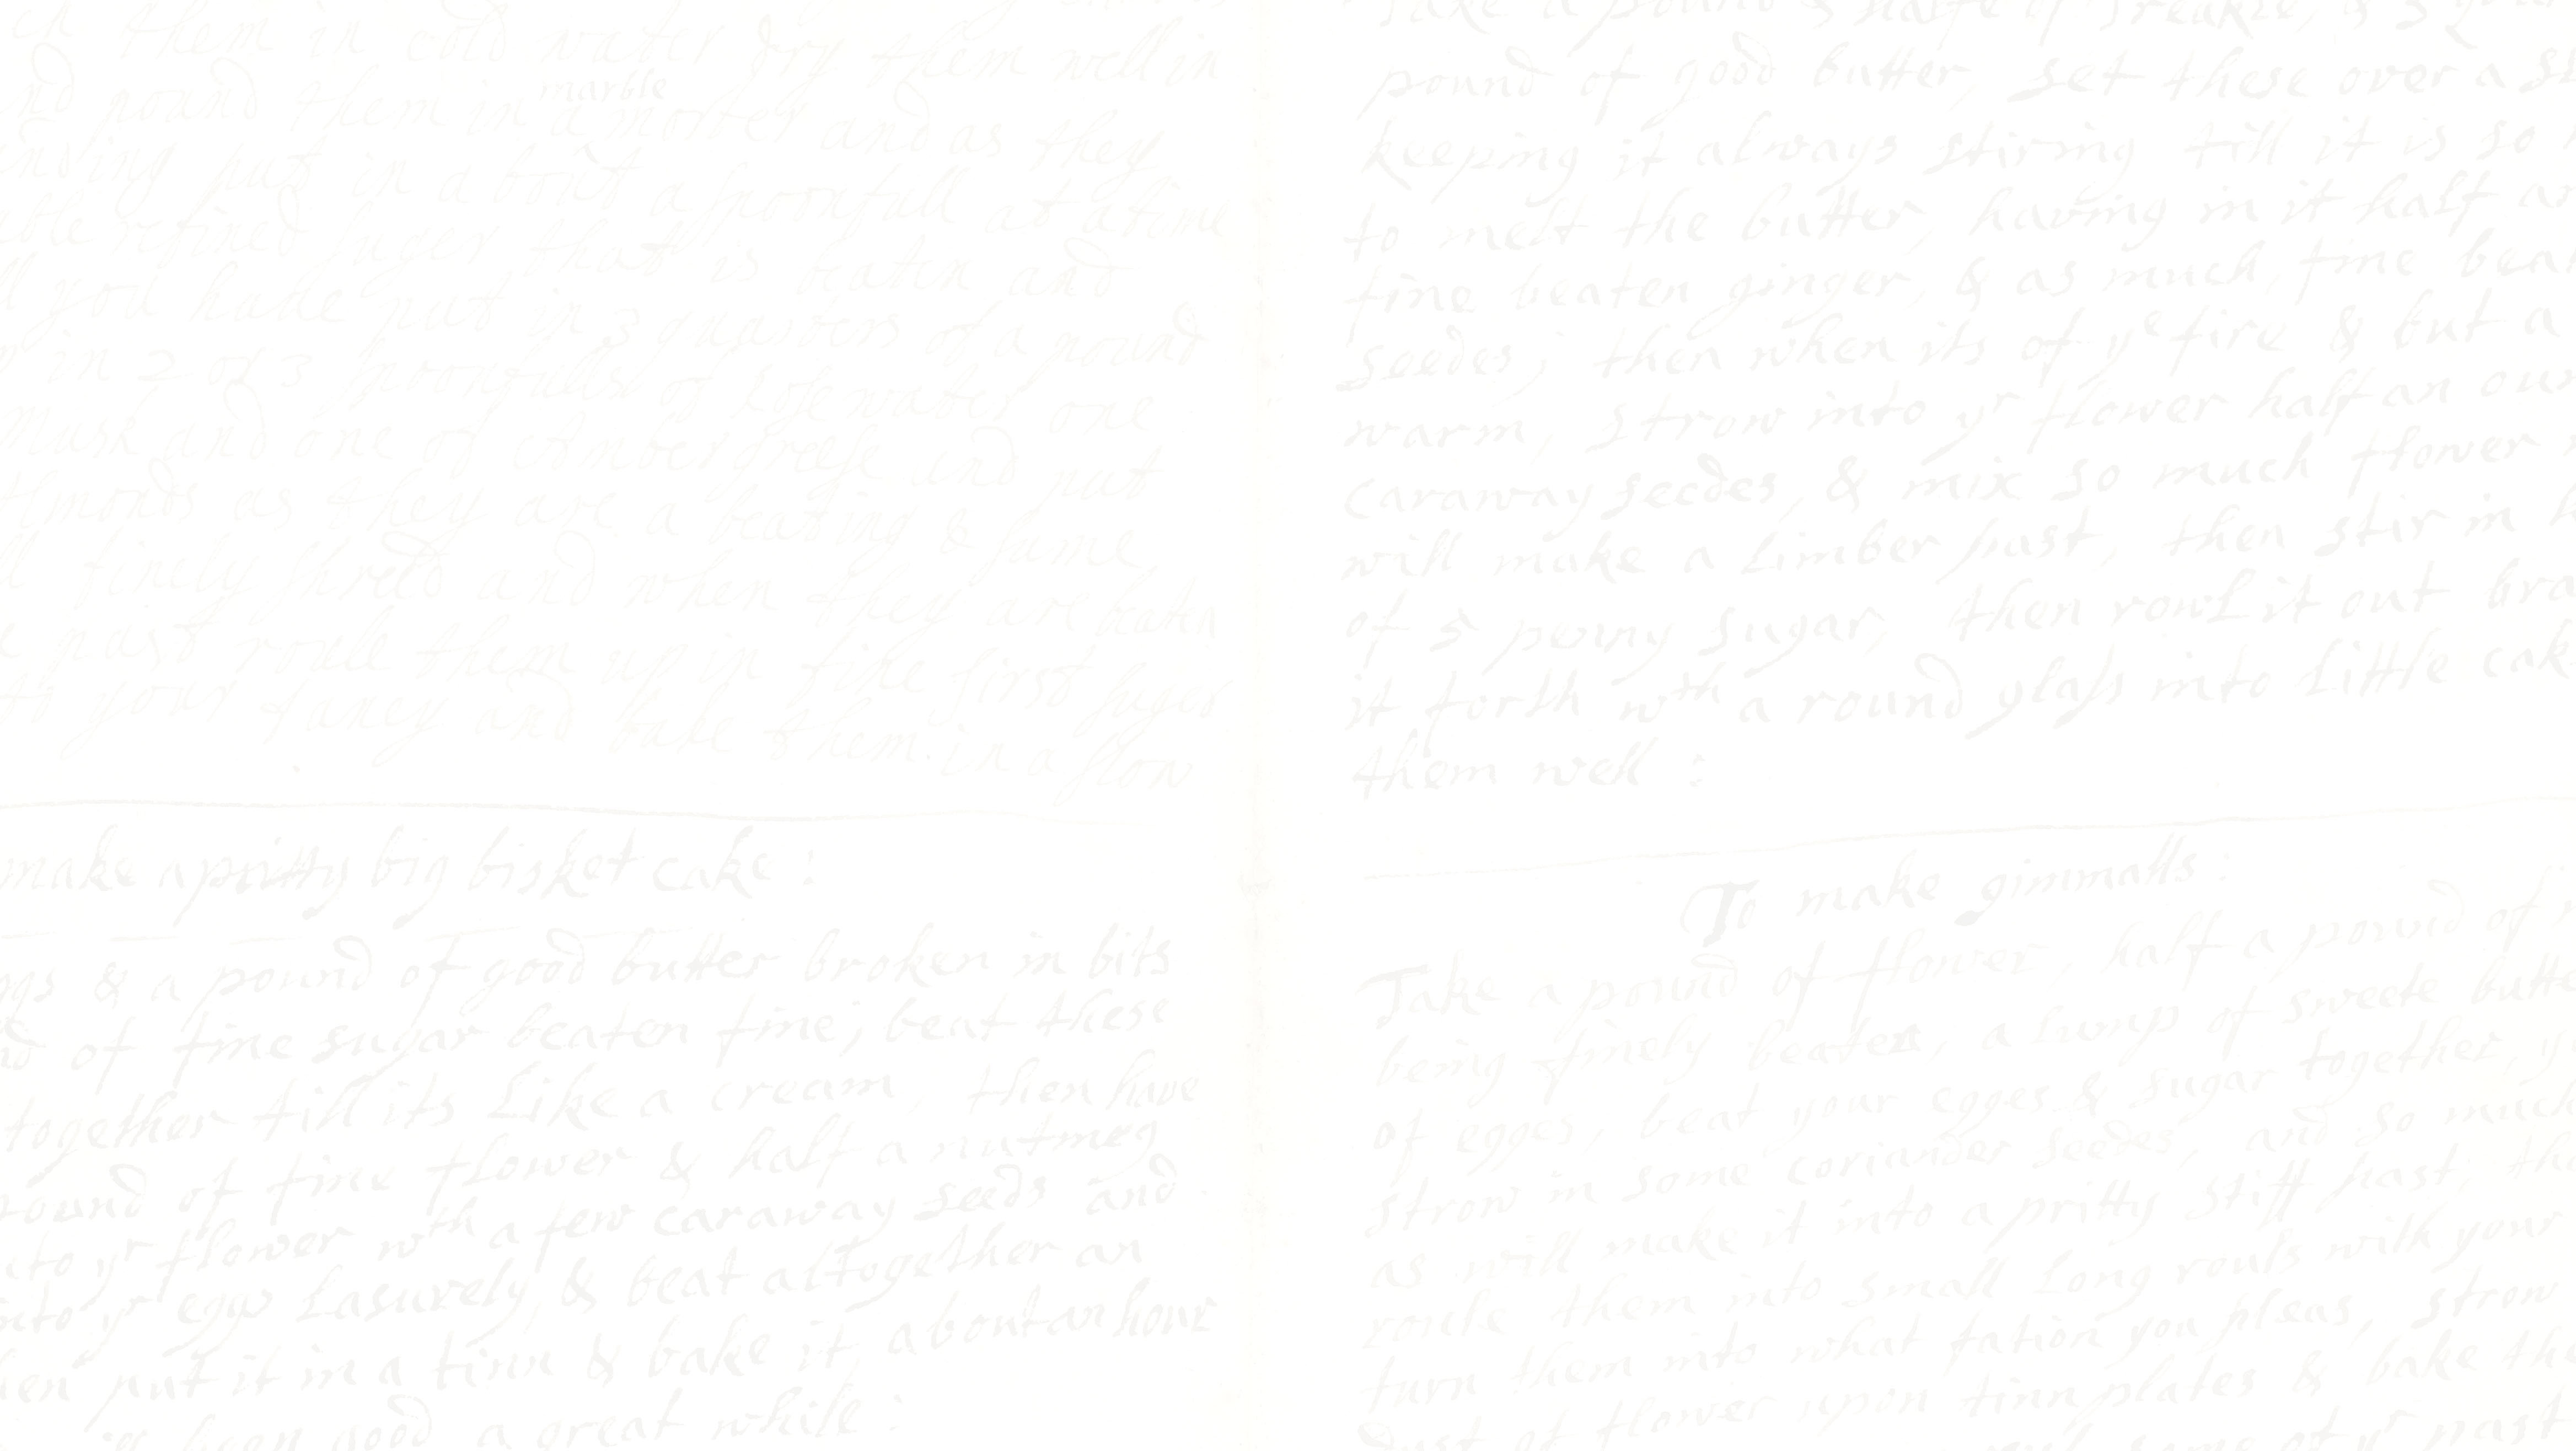 them in cold water dry them well in
marble
nd pound them in a mortey and as they
nding put in a bout a spoonfull at a time
ble refined suger that is beaten and
ll you have put in 3 quarters of a pound
in 2 or 3 spoonfulls of Rose water one
musk and one of Ambergreese and put
Almonds as they are a beating & sume
ll finely shred and when they are beaten
e past roele them up in fine first suger
to your fancy and bake them in a slow
make a pritty big bisket cake :
ggs & a pound of good butter broken in bits
nd of fine sugar beaten fine, beat these
together till its Like a cream, then have
pound of fine flower & half a nutmeg
nto yr flower wth a few caraway seeds and
into yr eggs Lasurely, & beat altogether an
hen put it in a tinn & bake it about an hour
keep good a great while :
Take a pound & halfe of Treakle, & 3 quar
pound of good butter, set these over a s
keeping it always stiring till it is so
to melt the butter, having in it half an
fine beaten ginger, & as much fine bea
seedes, then when its of ye fire & but a
warm, strow into yr flower half an oun
caraway seedes, & mix so much flower
will make a Limber past, then stir in h
of 5 penny sugar, then rowl it out bra
it forth wth a round glass into Little cak
them well :
To make gimmalls :
Take a pound of flower, half a pound of
being finely beaten, a Lump of sweete butte
of egges, beat your egges & sugar together, y
strow in some coriander seedes, and so much
as will make it into a pritty stiff past, the
rowle them into small Long rouls with your
turn them into what fation you pleas, strow
Dust of flower upin tinn plates & bake the
some of yr past